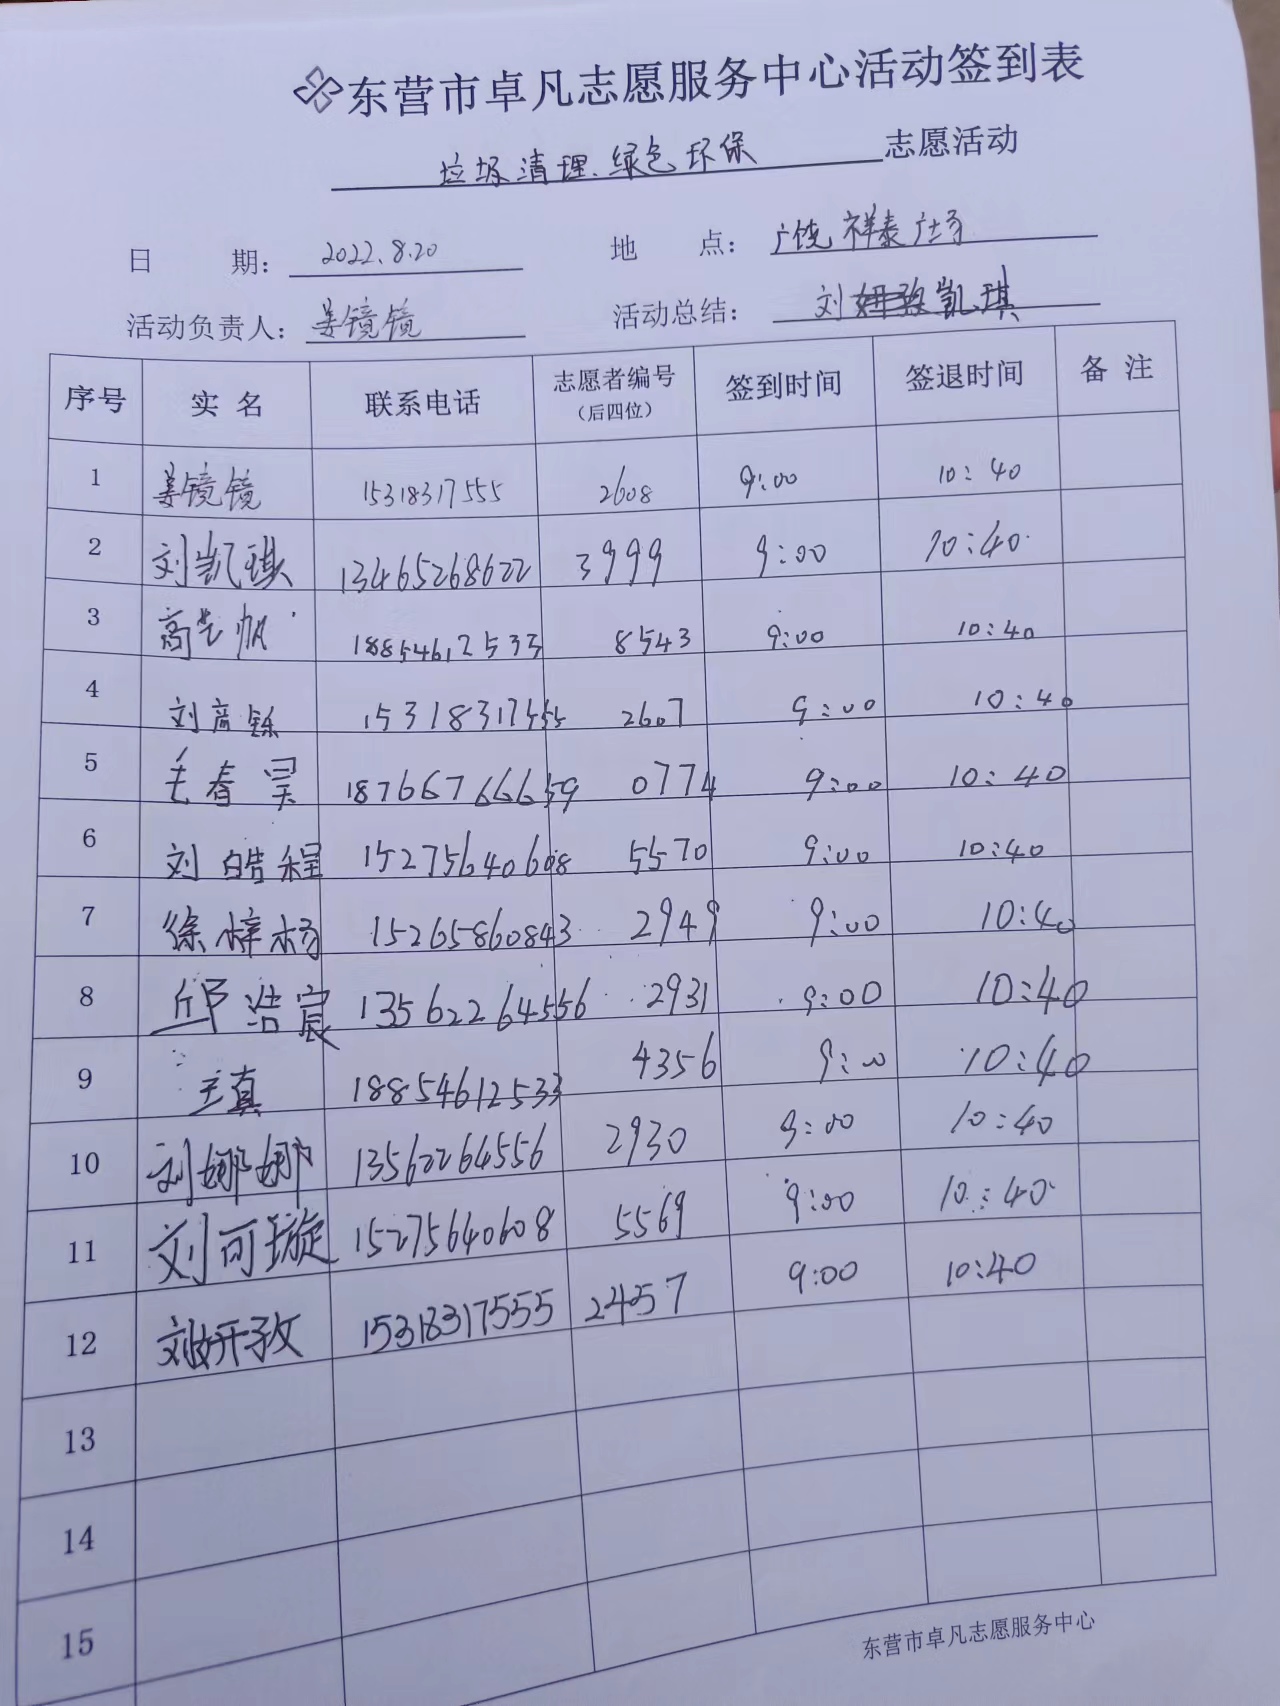 东营市卓凡志愿服务中心活动签到表
垃圾清理、绿色环保 志愿活动
日 期：2022.8.20 地 点：广饶祥泰广场
活动负责人：姜镜镜 活动总结：刘凯琪
序号 实名 联系电话 志愿者编号（后四位） 签到时间 签退时间 备注
1 姜镜镜 15318317555 2608 9:00 10:40
2 刘凯琪 13465268622 3999 9:00 10:40
3 高艺帆 18854612533 8543 9:00 10:40
4 刘彦铄 15318317555 2607 9:00 10:40
5 毛春昊 18766766659 0774 9:00 10:40
6 刘皓程 15275640608 5570 9:00 10:40
7 徐梓杨 15265860843 2949 9:00 10:40
8 邱浩宸 13562264556 2931 9:00 10:40
9 王真 18854612533 4356 9:00 10:40
10 刘娜娜 13562264556 2930 9:00 10:40
11 刘可璇 15275640608 5569 9:00 10:40
12 刘妍孜 15318317555 2457 9:00 10:40
13
14
15
东营市卓凡志愿服务中心